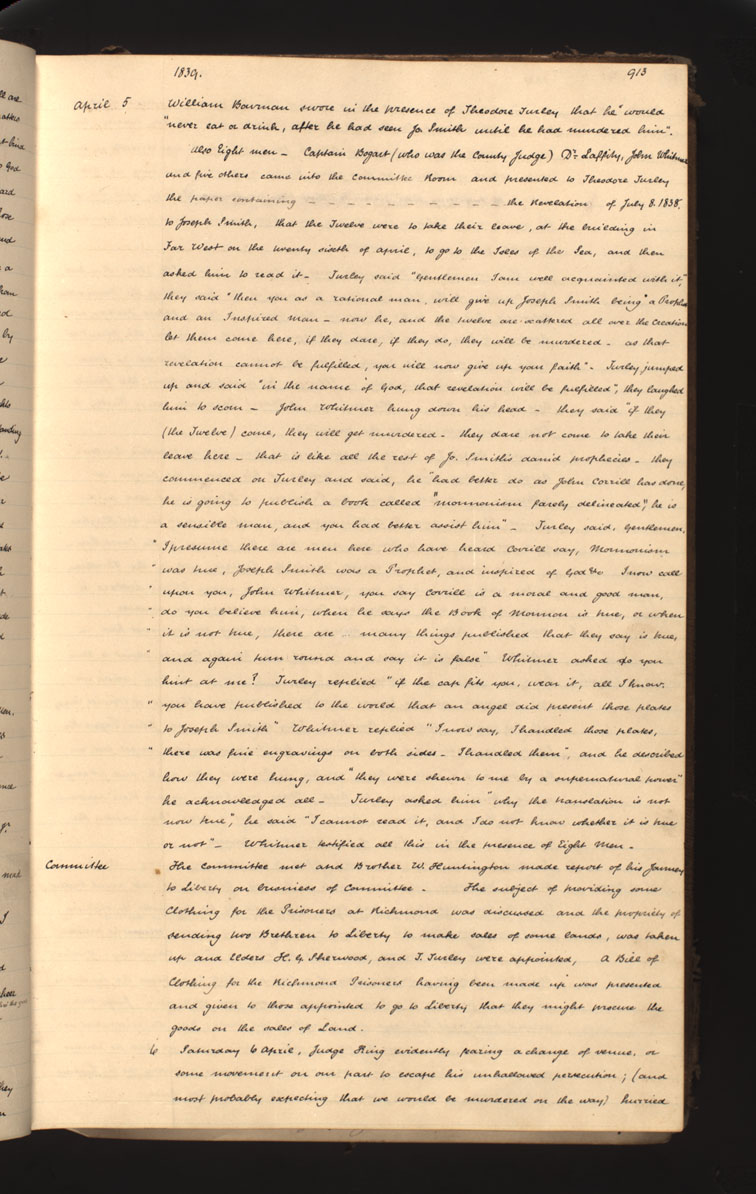 1839.
913
April 5
William Bowman swore in the presence of Theodore Turley that he "would
"never eat or drink, after he had seen Jo. Smith until he had murdered him".
Also Eight men – Captain Bogart (who was the County Judge) Dr. Laffity, John Whitmer
and five others came into the Committee Room and presented to Theodore Turley
the paper containing – – – – – – – – – – the Revelation of July 8. 1838.
to Joseph Smith, that the Twelve were to take their leave, at the building in
Far West on the twenty sixth of april, to go to the Isles of the Sea, and then
asked him to read it – Turley said "Gentlemen I am well acquainted with it,"
they said "then you as a rational man, will give up Joseph Smith being" a Prophet
and an Inspired man – now he, and the twelve are scattered all over the Creation
let them come here, if they dare, if they do, they will be murdered – as that
revelation cannot be fulfilled, you will now give up your faith" – Turley jumped
up and said "in the name of God, that revelation will be fulfilled", they laughed
him to scorn – John Whitmer hung down his head – they said "if they
(the Twelve) come, they will get murdered – they dare not come to take their
leave here – that is like all the rest of Jo. Smith's damd prophecies – they
commenced on Turley and said, he "had better do as John Corrill has done,
he is going to publish a book called "mormonism fairly delineated", he is
a sensible man, and you had better assist him" – Turley said, Gentlemen,
" I presume there are men here who have heard Corrill say, Mormonism
" was true, Joseph Smith was a Prophet, and inspired of God &c I now call
" upon you, John Whitmer, you say Corrill is a moral and good man,
" do you believe him, when he says the Book of Mormon is true, or when
" it is not true, there are many things published that they say is true,
" and again turn round and say it is false" Whitmer asked do you
hint at me? Turley replied "if the cap fits you, wear it, all I know,
" you have published to the world that an angel did present those plates
" to Joseph Smith" Whitmer replied "I now say, I handled those plates,
" there was fine engravings on both sides – I handled them", and he described
how they were hung, and "they were shewn to me by a supernatural power"
he acknowledged all – Turley asked him "why the translation is not
now true", he said "I cannot read it, and I do not know whether it is true
or not" – Whitmer testified all this in the presence of Eight men –
Committee
The Committee met and Brother W. Huntington made report of his Journey
to Liberty on business of Committee – The subject of providing some
Clothing for the Prisoners at Richmond was discussed and the propriety of
sending two Brethren to Liberty to make sales of some lands, was taken
up and Elders H. G Sherwood, and T. Turley were appointed, A Bill of
Clothing for the Richmond Prisoners having been made up was presented
and given to those appointed to go to Liberty that they might procure the
goods on the sales of Land.
6 Saturday 6 April, Judge King evidently fearing a change of venue, or
some movement on our part to escape his unhallowed persecution; (and
most probably expecting that we would be murdered on the way) hurried